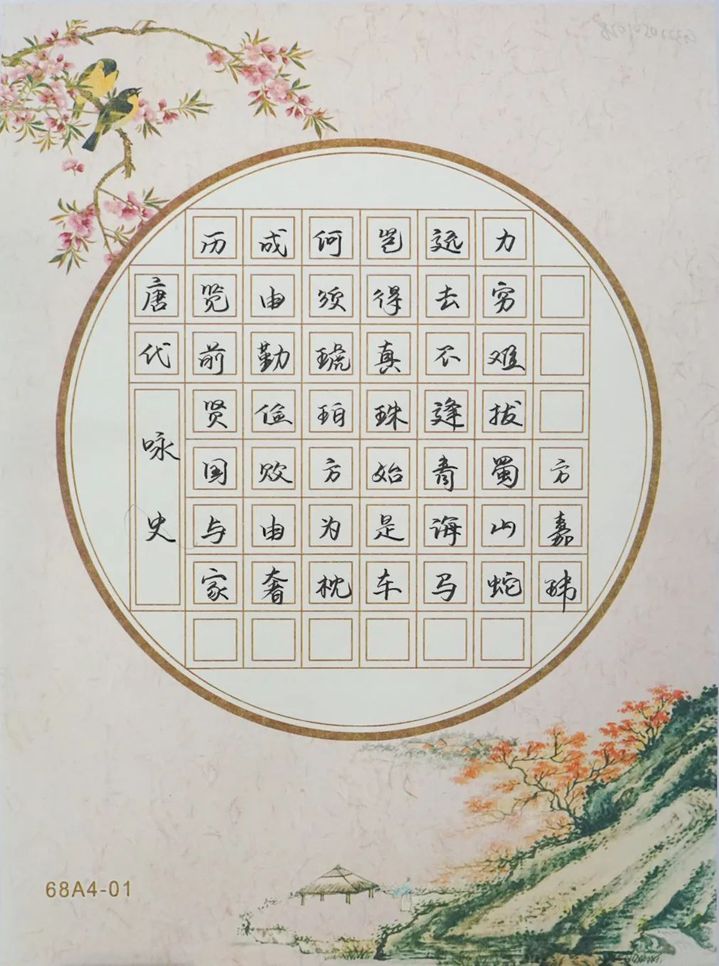 唐代
咏史
历览前贤国与家
成由勤俭败由奢
何须琥珀方为枕
岂得真珠始是车
远去不逢青海马
力穷难拔蜀山蛇
方嘉玮
68A4-01